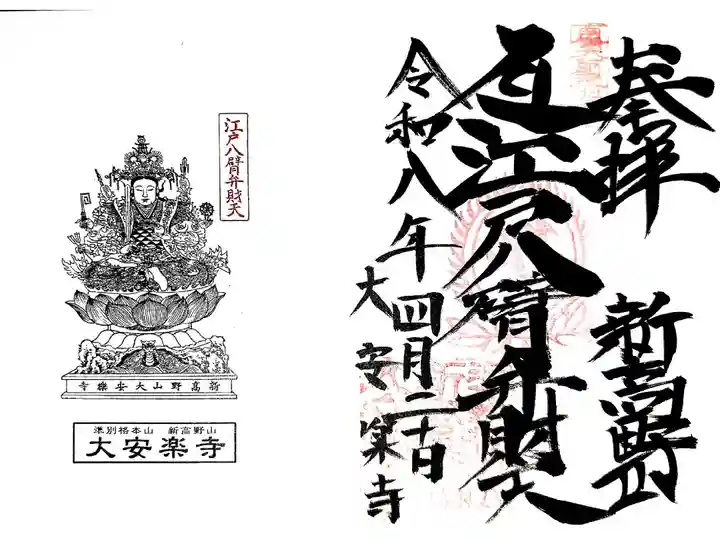 奉拝
新高野山
江戸八臂弁財天
令和八年四月二十日
大安楽寺
江戸八臂弁財天
新高野山大安樂寺
準別格本山 新高野山
大安楽寺